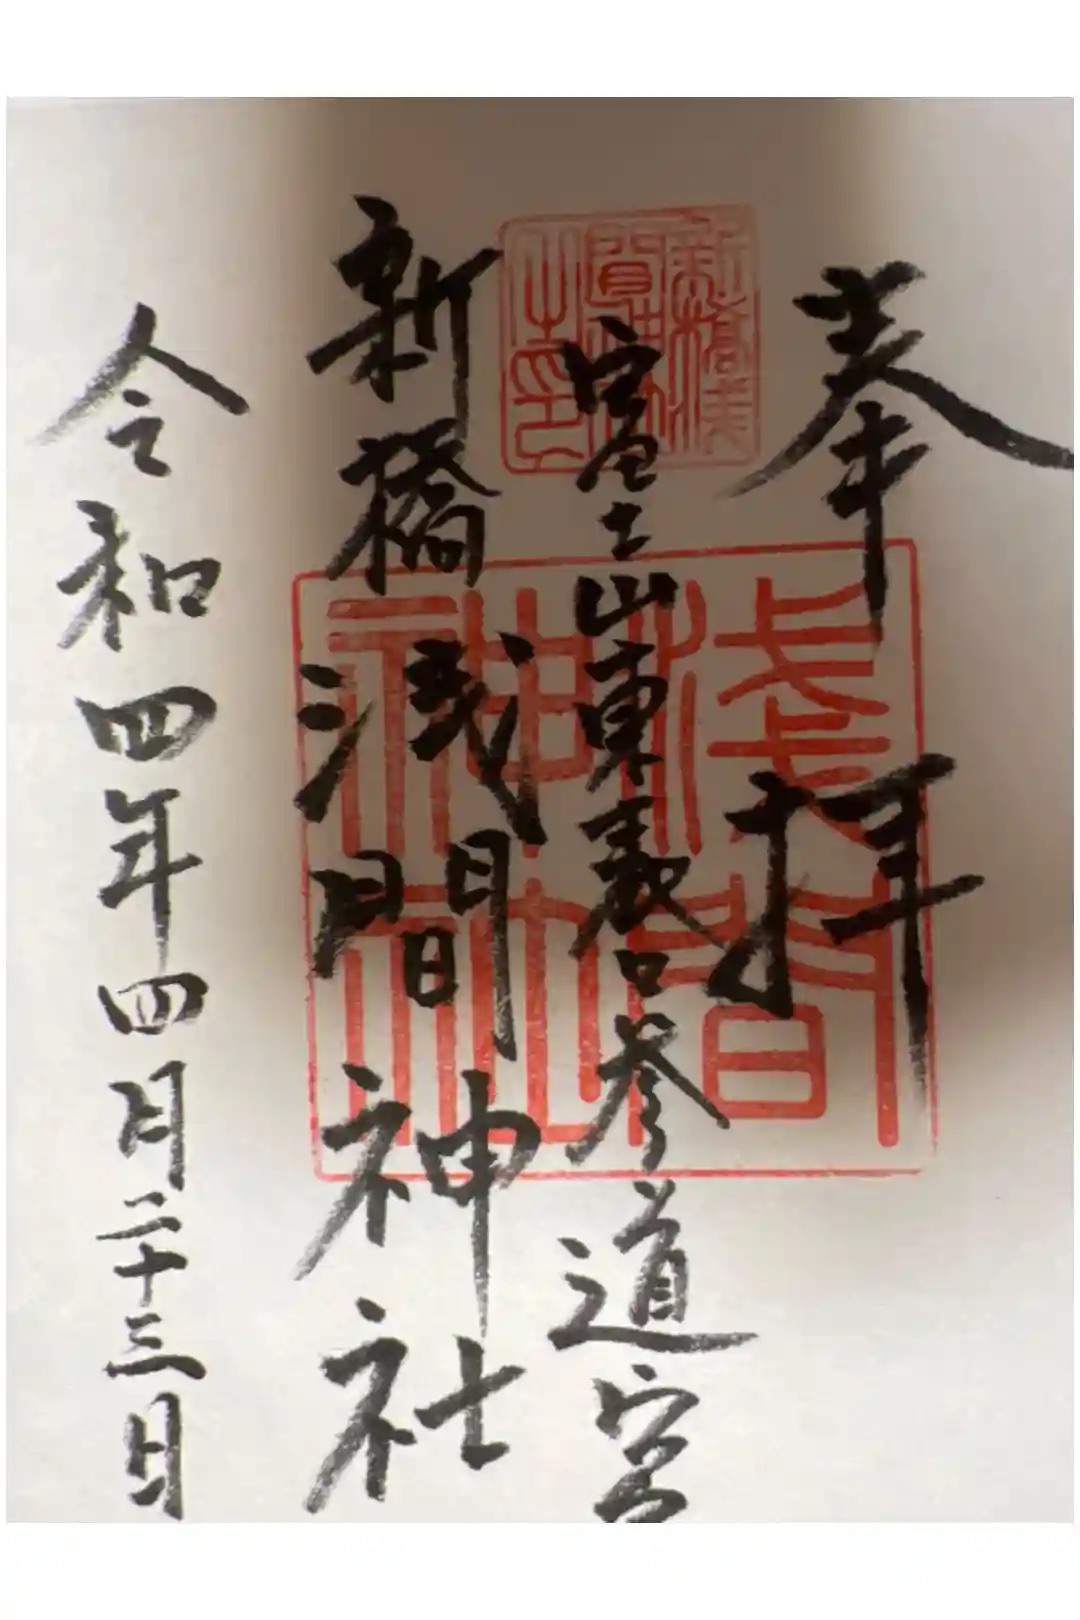 奉拝
富士山東表口参道宮
新橋浅
間神社
之印
浅間
神社
新橋浅間神社
令和四年四月二十三日